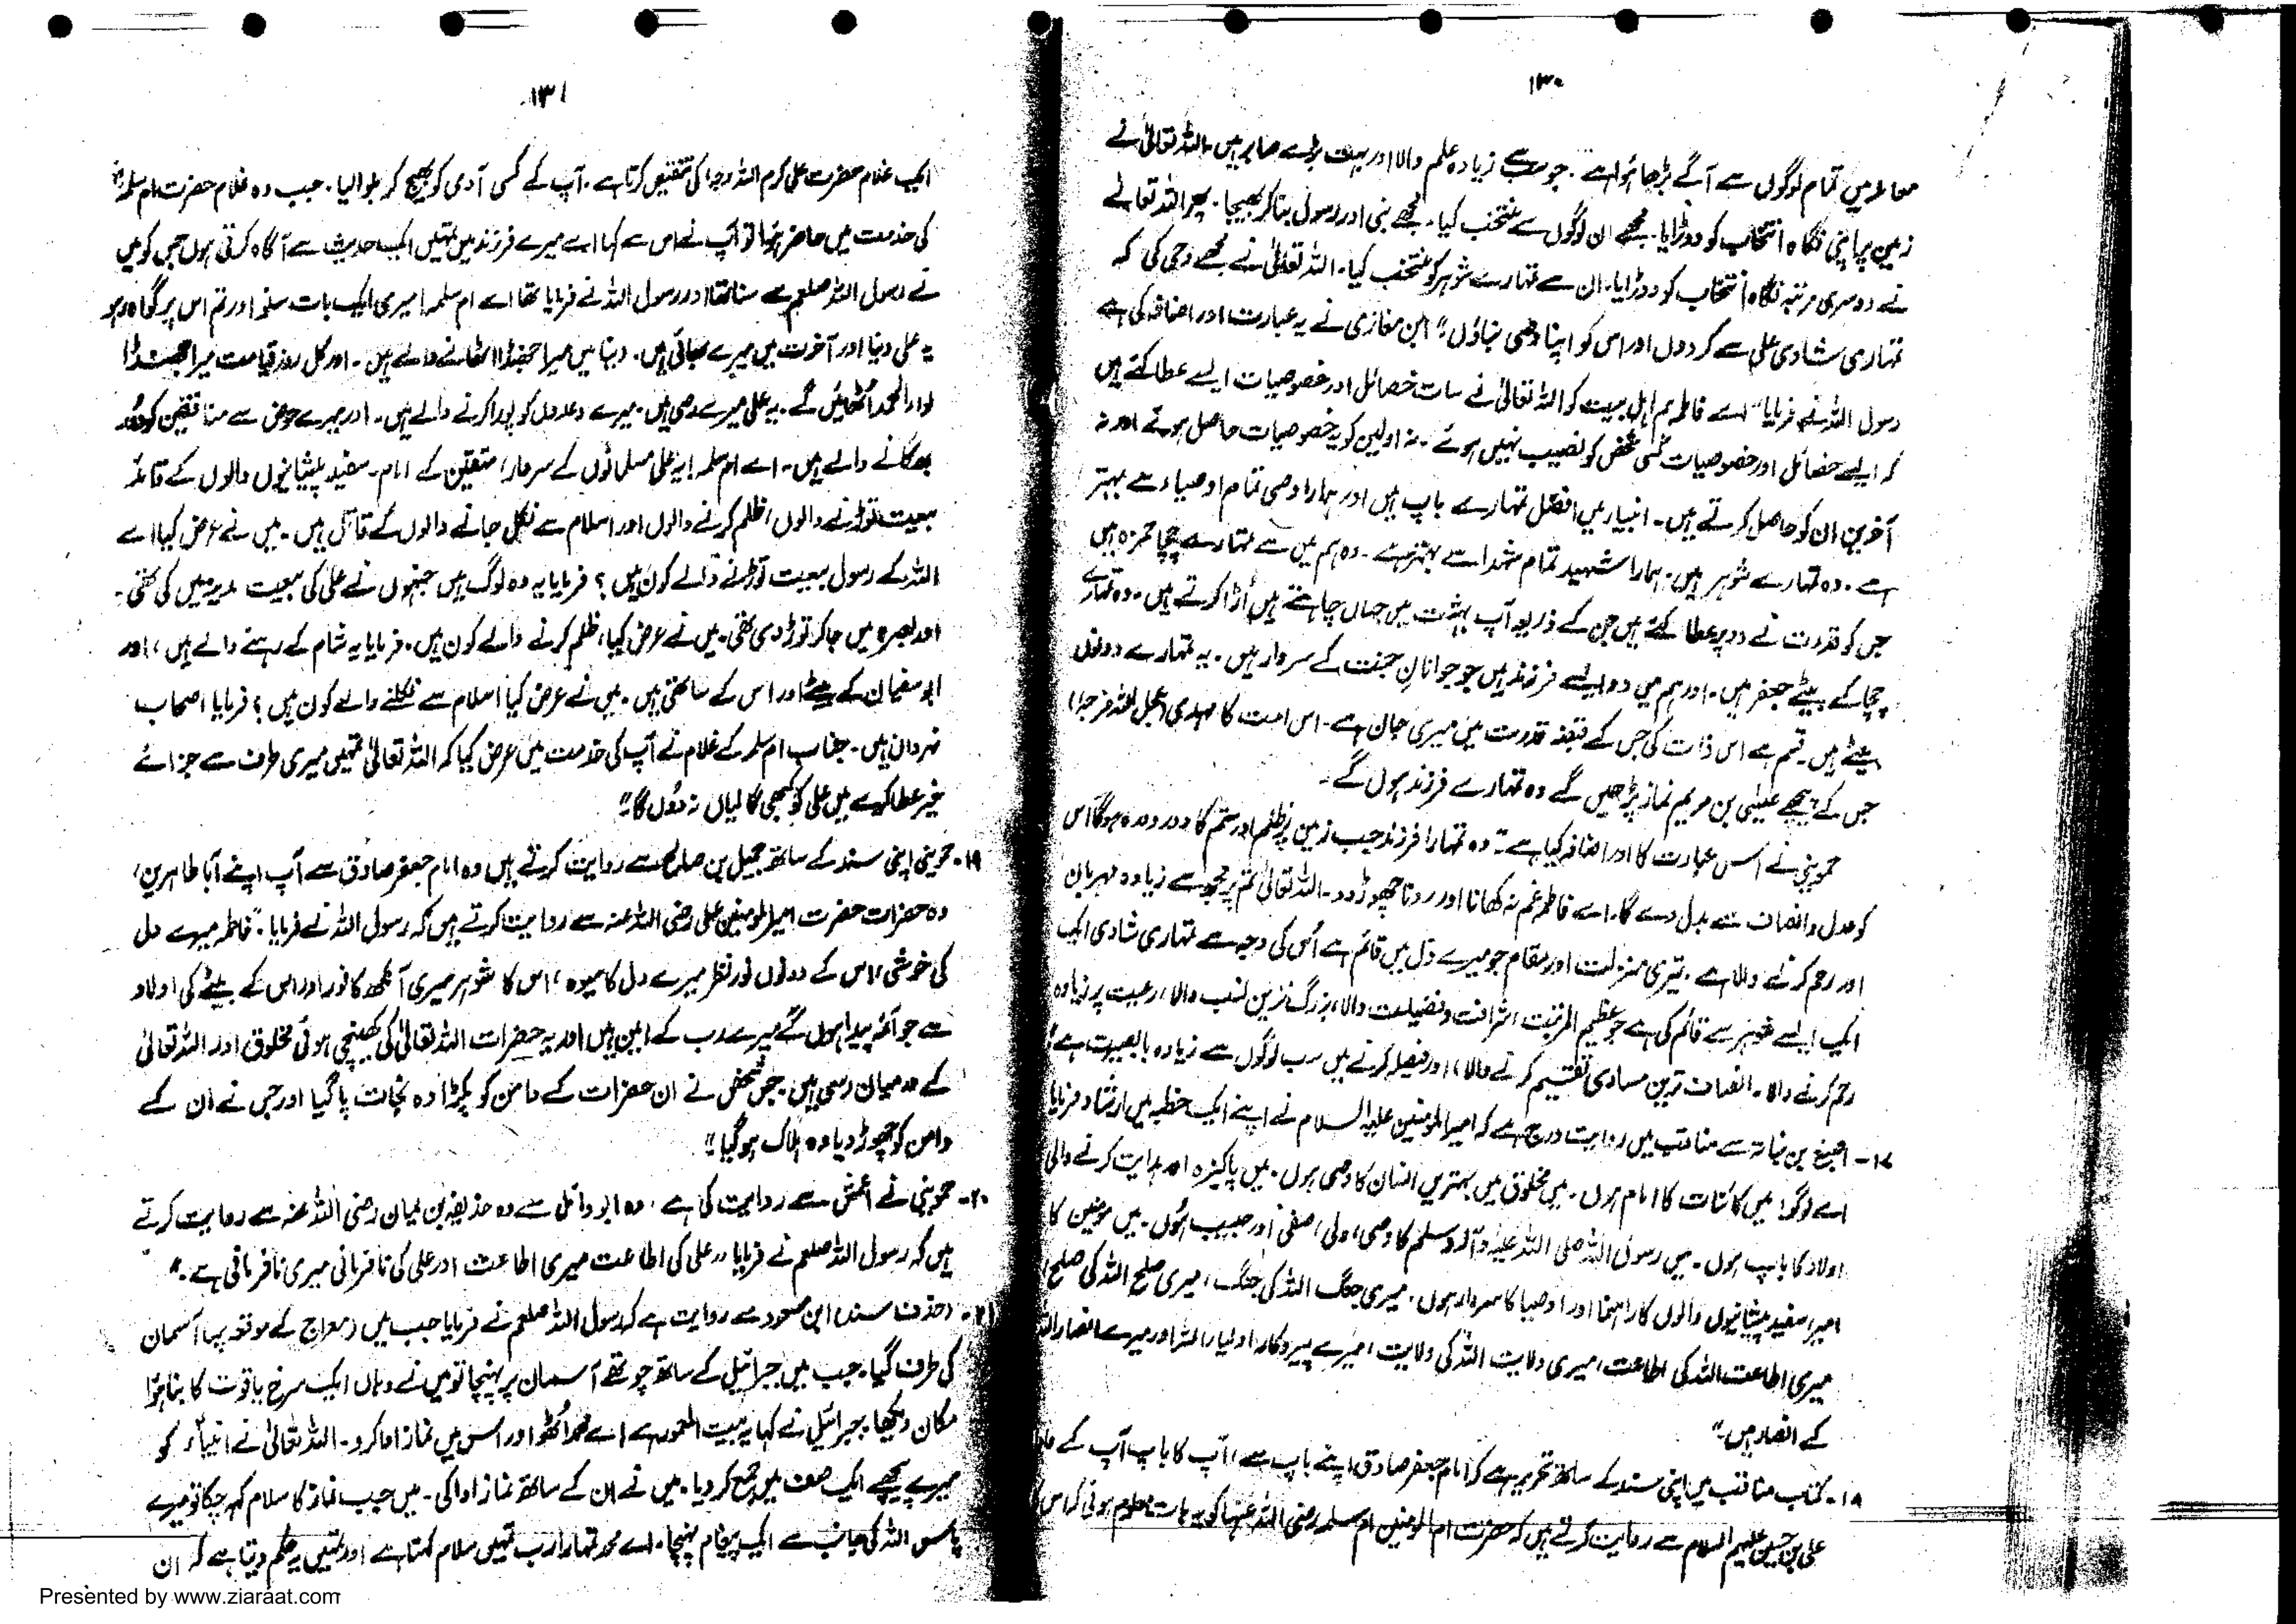 ۱۳۰
معاملہ میں تمام لوگوں سے آگے بڑھا ہوا ہے۔ جو سب سے زیادہ علم والا اور بہت بڑے صابر ہیں۔ اللہ تعالیٰ نے
زمین پر اپنی نگاہ انتخاب کو دوڑایا۔ مجھے ان لوگوں سے منتخب کیا۔ مجھے نبی اور رسول بنا کر بھیجا۔ پھر اللہ تعالےٰ
نے دوسری مرتبہ نگاہ انتخاب کو دوڑایا۔ ان سے تمہارے شوہر کو منتخب کیا۔ اللہ تعالیٰ نے مجھے وحی کی کہ
تمہاری شادی علی سے کر دوں اور اس کو اپنا وصی بناؤں" ابن مغازی نے یہ عبارت اور اضافہ کی ہے
رسول اللہ نے فرمایا "اے فاطمہ ہم اہل بیت کو اللہ تعالیٰ نے سات خصائل اور خصوصیات ایسے عطا کئے ہیں
کہ ایسے خصائل اور خصوصیات کسی شخص کو نصیب نہیں ہوئے۔ نہ اولین کو یہ خصوصیات حاصل ہوئے اور نہ
آخرین ان کو حاصل کرتے ہیں۔ انبیاء میں افضل تمہارے باپ ہیں اور ہمارا وصی تمام اوصیاء سے بہتر
ہے۔ وہ تمہارے شوہر ہیں۔ ہمارا شہید تمام شہدا سے بہتر ہے۔ وہ ہم میں سے تمہارے چچا حمزہ ہیں
جس کو قدرت نے دو پر عطا کئے ہیں جن کے ذریعہ آپ بہشت میں جہاں چاہتے ہیں اُڑا کرتے ہیں۔ وہ تمہارے
چچا کے بیٹے جعفر ہیں۔ اور ہم میں دو ایسے فرزند ہیں جو جوانانِ جنت کے سردار ہیں۔ یہ تمہارے دونوں
بیٹے ہیں۔ قسم ہے اس ذات کی جس کے قبضہ قدرت میں میری جان ہے۔ اس امت کا مہدی (عجل اللہ فرجہ)
جس کے پیچھے عیسٰی بن مریم نماز پڑھیں گے وہ تمہارے فرزند ہوں گے۔
حموینی نے اس عبارت کا اور اضافہ کیا ہے "وہ تمہارا فرزند جب زمین پر ظلم اور ستم کا دور دورہ ہوگا اس
کو عدل و انصاف سے بدل دے گا۔ اے فاطمہ غم نہ کھانا اور رونا چھوڑ دو۔ اللہ تعالیٰ تم پر مجھ سے زیادہ مہربان
اور رحم کرنے والا ہے۔ تیری منزلت اور مقام جو میرے دل میں قائم ہے اُس کی وجہ سے تمہاری شادی ایک
ایک ایسے شوہر سے قائم کی ہے جو عظیم المرتبت، شرافت و فضیلت والا، بزرگ ترین نسب والا، رعیت پر زیادہ
رحم کرنے والا۔ انصاف ترین مساوی تقسیم کرنے والا، اور فیصلہ کرنے میں سب لوگوں سے زیادہ بالبصیرت ہے"
۱۷۔ اصبغ بن نباتہ سے مناقب میں روایت درج ہے کہ امیر المومنین علیہ السلام نے اپنے ایک خطبہ میں ارشاد فرمایا
اے لوگو! میں کائنات کا امام ہوں۔ میں مخلوق میں بہترین انسان کا وصی ہوں۔ میں پاکیزہ اور ہدایت کرنے والی
اولاد کا باپ ہوں۔ میں رسول اللہ صلی اللہ علیہ وآلہ وسلم کا وصی، ولی، صفی اور حبیب ہوں۔ میں مومنین کا
امیر، سفید پیشانیوں والوں کا راہنما اور اوصیا کا سردار ہوں۔ میری جنگ اللہ کی جنگ، میری صلح اللہ کی صلح،
میری اطاعت اللہ کی اطاعت، میری ولایت اللہ کی ولایت، میرے پیروکار اولیاء اللہ اور میرے انصار اللہ
کے انصار ہیں۔"
۱۸۔ کتاب مناقب میں اپنی سند کے ساتھ تحریر ہے کہ امام جعفر صادق اپنے باپ سے، آپ کا باپ آپ کے
علی بن حسین علیہم السلام سے روایت کرتے ہیں کہ حضرت ام المومنین ام سلمہ رضی اللہ عنہا کو یہ بات معلوم ہوئی کہ اس کا
۱۳۱
ایک غلام حضرت علی کرم اللہ وجہ کی تنقیص کرتا ہے۔ آپ کے کسی آدمی کو بھیج کر بلوا لیا۔ جب وہ غلام حضرت ام سلمہ
کی خدمت میں حاضر ہوا تو آپ نے اس سے کہا اے میرے فرزند میں تمہیں ایک حدیث سے آگاہ کرتی ہوں جس کو میں
نے رسول اللہ صلعم سے سنا تھا اور رسول اللہ نے فرمایا تھا اے ام سلمہ! میری ایک بات سنو اور تم اس پر گواہ رہو
یہ علی دنیا اور آخرت میں میرے بھائی ہیں۔ دنیا میں میرا جھنڈا اٹھانے والے ہیں۔ اور کل روز قیامت میرا جھنڈا
لواء الحمد اٹھائیں گے۔ یہ علی میرے وصی ہیں۔ میرے وعدوں کو پورا کرنے والے ہیں۔ اور میرے حوض سے منافقین کو دُور
بھگانے والے ہیں۔ اے ام سلمہ! یہ علی مسلمانوں کے سردار، متقین کے امام۔ سفید پیشانیوں والوں کے قائد
بیعت توڑنے والوں، ظلم کرنے والوں اور اسلام سے نکل جانے والوں کے قاتل ہیں۔ میں نے عرض کیا اے
اللہ کے رسول بیعت توڑنے والے کون ہیں؟ فرمایا یہ وہ لوگ ہیں جنہوں نے علی کی بیعت مدینہ میں کی تھی۔
اور بصرہ میں جا کر توڑ دی تھی۔ میں نے عرض کیا، ظلم کرنے والے کون ہیں۔ فرمایا یہ شام کے رہنے والے ہیں، اور
ابو سفیان کے بیٹے اور اس کے ساتھی ہیں۔ میں نے عرض کیا اسلام سے نکلنے والے کون ہیں؟ فرمایا اصحاب
نہروان ہیں۔ جناب ام سلمہ کے غلام نے آپ کی خدمت میں عرض کیا کہ اللہ تعالیٰ تمہیں میری طرف سے جزائے
خیر عطا کرے میں علی کو کبھی گالیاں نہ دُوں گا۔"
۱۹۔ حموینی اپنی سند کے ساتھ جمیل بن صالح سے روایت کرتے ہیں وہ امام جعفر صادق سے آپ اپنے آبا طاہرین،
وہ حضرات حضرت امیر المومنین علی رضی اللہ عنہ سے روایت کرتے ہیں کہ رسول اللہ نے فرمایا۔ "فاطمہ میرے دل
کی خوشی، اس کے دونوں نور نظر میرے دل کا میوہ، اس کا شوہر میری آنکھ کا نور اور اس کے بیٹے کی اولاد
سے جو آئمہ پیدا ہوں گے میرے رب کے امین ہیں اور یہ حضرات اللہ تعالیٰ کی کھینچی ہوئی مخلوق اور اللہ تعالیٰ
کے درمیان رسی ہیں۔ جس شخص نے ان حضرات کے دامن کو پکڑا وہ نجات پا گیا اور جس نے ان کے
دامن کو چھوڑ دیا وہ ہلاک ہو گیا"
۲۰۔ حموینی نے اعمش سے روایت کی ہے، وہ ابو وائل سے وہ حذیفہ بن یمان رضی اللہ عنہ سے روایت کرتے
ہیں کہ رسول اللہ صلعم نے فرمایا "علی کی اطاعت میری اطاعت اور علی کی نافرمانی میری نافرمانی ہے۔"
۲۱۔ (حذف سند) ابن مسعود سے روایت ہے کہ رسول اللہ صلعم نے فرمایا جب میں (معراج کے موقعہ پر) آسمان
کی طرف گیا۔ جب میں جبرائیل کے ساتھ چوتھے آسمان پر پہنچا تو میں نے وہاں ایک سرخ یاقوت کا بنا ہوا
مکان دیکھا۔ جبرائیل نے کہا یہ بیت المعمور ہے اے محمد اُٹھو اور اس میں نماز ادا کرو۔ اللہ تعالیٰ نے انبیاء کو
میرے پیچھے ایک صف میں جمع کر دیا۔ میں نے ان کے ساتھ نماز ادا کی۔ میں جب نماز کا سلام کہہ چکا تو میرے
پاس اللہ کی جانب سے ایک پیغام پہنچا۔ اے محمد تمہارا رب تمہیں سلام کہتا ہے اور تمہیں یہ حکم دیتا ہے کہ ان
Presented by www.ziaraat.com